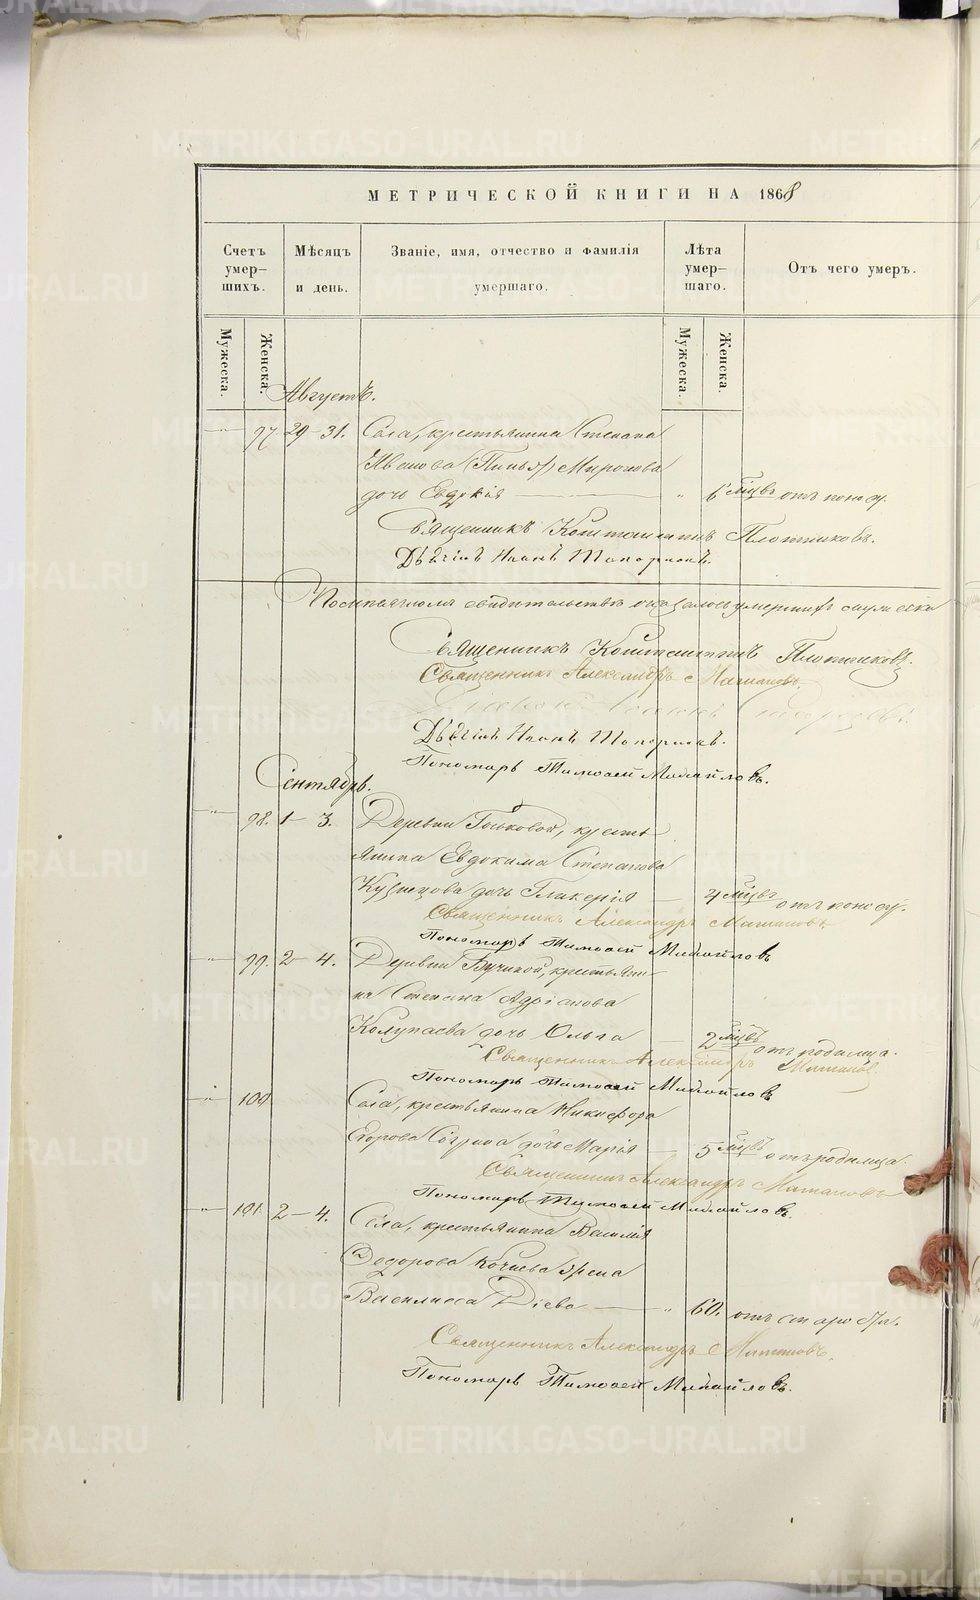 МЕТРИЧЕСКОЙ КНИГИ НА 1868
Счетъ умер-шихъ.
Мѣсяцъ и день.
Званіе, имя, отчество и фамилія умершаго.
Лѣта умер-шаго.
Отъ чего умеръ.
Мужеска.
Женска.
Мужеска.
Женска.
Августъ.
97. 29-31. Села, крестьянина Степана
Иванова Миронова
дочь Евдокія — " 6 мѣцвъ отъ поносу.
Священникъ Константинъ Плотниковъ.
Дьячекъ Иванъ Топорковъ.
свидѣтельствѣ оказалось умершихъ мужеска
Священникъ Константинъ Плотниковъ.
Священникъ Александръ
Дьячекъ Иванъ Топорковъ.
Пономарь Тимофей Михайловъ.
Сентябрь.
98. 1-3. Деревни крестъ
янина Евдокима Степанова
Кузнецова дочь Гликерія — 4 мѣцвъ отъ поносу.
Священникъ Александръ
Пономарь Тимофей Михайловъ
99. 2-4. Деревни крестьяни
на Степана Адріанова
Колупаева дочь Ольга — 2 мѣцвъ отъ родимца.
Священникъ Александръ
Пономарь Тимофей Михайловъ
100. Села, крестьянина Никифора
Егорова дочь Марія — 5 мѣцвъ отъ родимца.
Священникъ Александръ
Пономарь Тимофей Михайловъ.
101. 2-4. Села, крестьянина Василія
Федорова жена
Василисса — " 60. отъ старости.
Священникъ Александръ
Пономарь Тимофей Михайловъ.
METRIKI.GASO-URAL.RU